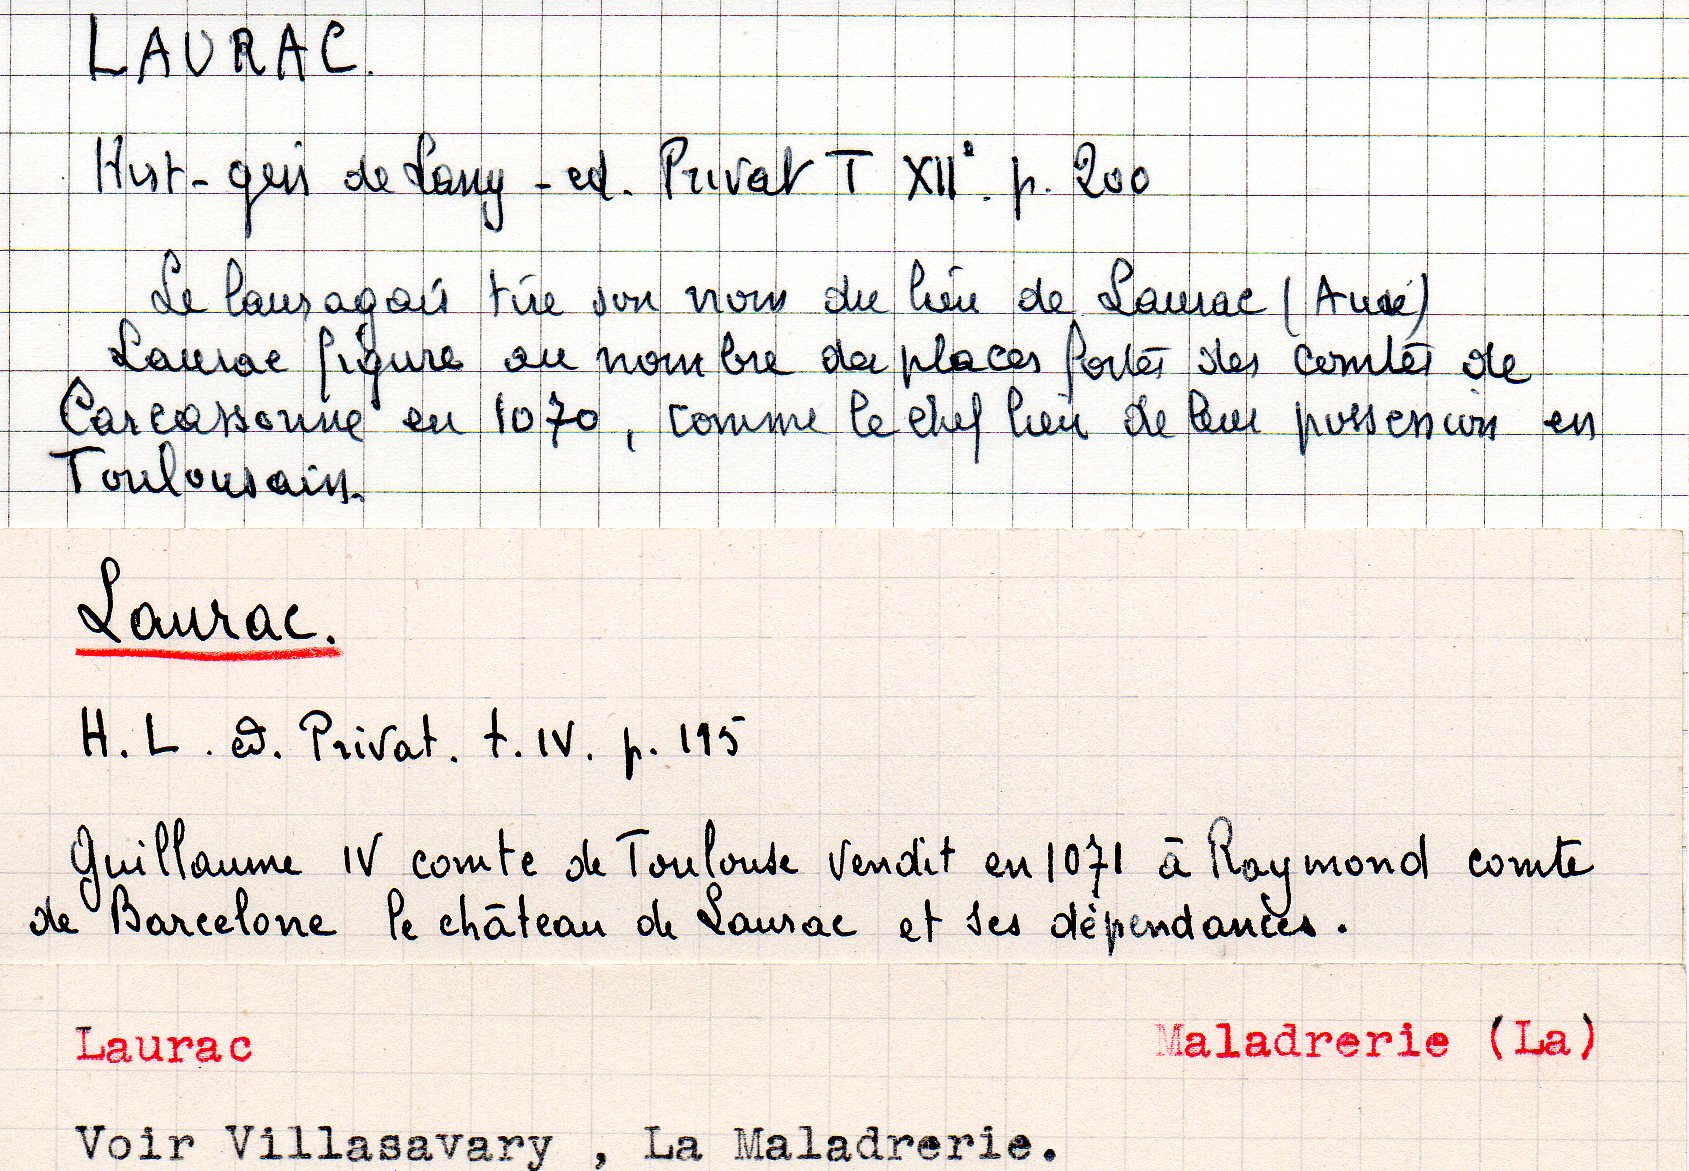 LAURAC.
Hist - gén de Lang - ed. Privat T XII°. p. 200
Le lauragais tire son nom du lieu de Laurac (Aude)
Laurac figure au nombre des places fortes des comtes de
Carcassonne en 1070, comme le chef lieu de leur possession en
Toulousain.
Laurac.
H. L. ed. Privat. t. IV. p. 195
Guillaume IV comte de Toulouse vendit en 1071 à Raymond comte
de Barcelone le château de Laurac et ses dépendances.
Laurac Maladrerie (La)
Voir Villasavary , La Maladrerie.